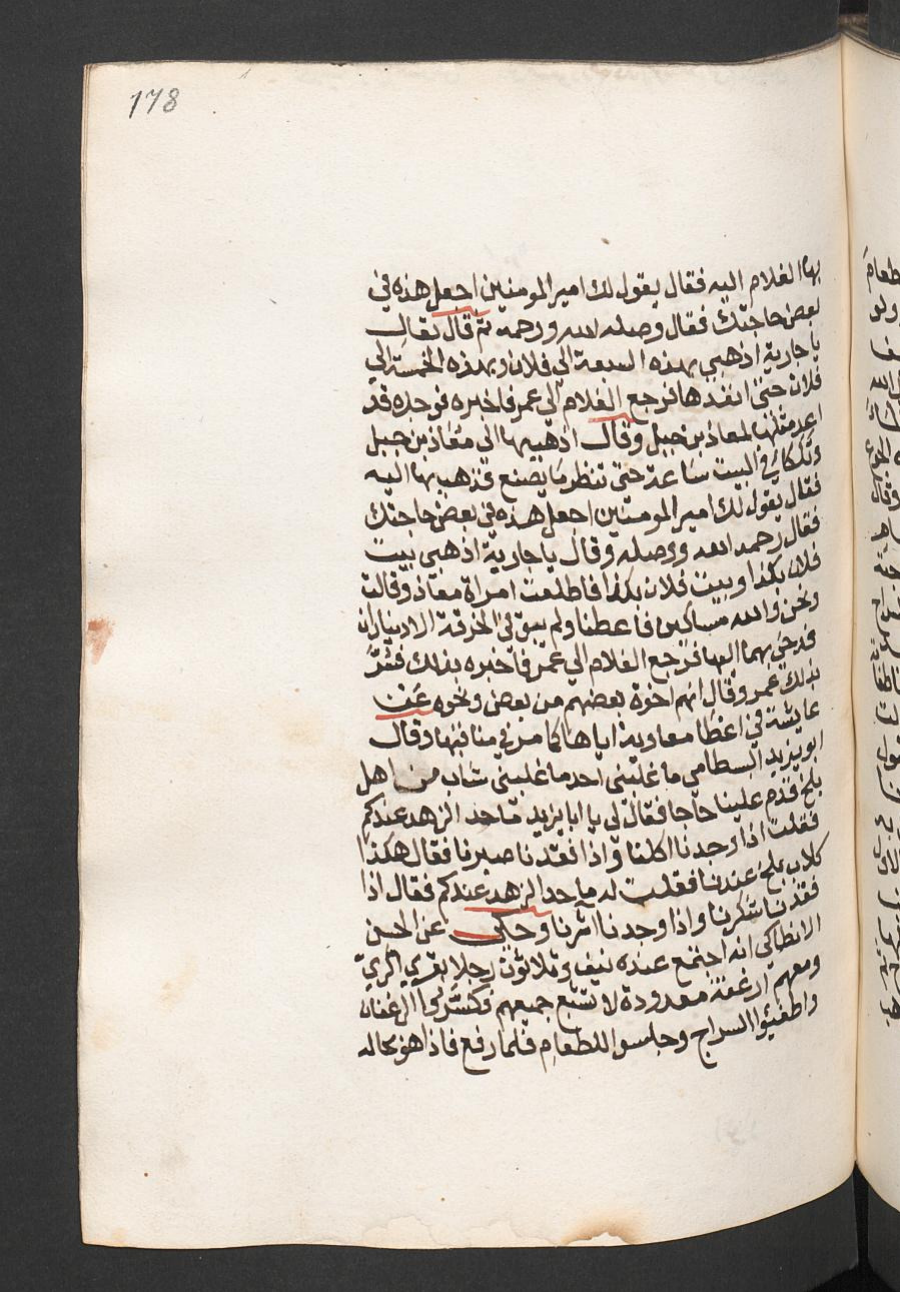 178
بها الغلام اليه فقال يقول لك امير المومنين اجعل هذه في
بعض حاجتك فقال وصله الله ورحمه ثم قال تعالى
يا جارية اذهبي بهذه السبعة الي فلان وبهذه الخمسة الي
فلان حتى انفدها فرجع الغلام الي عمر فاخبره فوجده قد
اعد مثلها لمعاذ بن جبل وقال اذهب بها الى معاذ بن جبل
وتلكا في البيت ساعة حتى تنظر ما يصنع فذهب بها اليه
فقال يقول لك امير المومنين اجعل هذه في بعض حاجتك
فقال رحمه الله ووصله وقال يا جارية اذهبي بيت
فلان بكذا وبيت فلان بكذا فاطلعت امراة معاذ وقالت
ونحن والله مساكين فاعطنا ولم يبق في الخرقة الا ديناران
فدحي بهما اليها فرجع الغلام الي عمر فاخبره بذلك فسر
بذلك عمر وقال انهم اخوة بعضهم من بعض ونحوه عن
عايشة في اعطا معاوية اياها كما مر في مناقبها وقال
ابو يزيد البسطامي ما غلبني احد ما غلبني شاب من اهل
بلخ قدم علينا حاجا فقال لي يا ابا يزيد ما حد الزهد عندكم
فقلت اذا وجدنا اكلنا واذا فقدنا صبرنا فقال هكذا
كلاب بلخ عندنا فقلت له ما حد الزهد عندكم فقال اذا
فقدنا شكرنا واذا وجدنا اثرنا وحكى عن الحسن
الانطاكي انه اجتمع عنده نيف وثلاثون رجلا بقري الري
ومعهم ارغفة معدودة لا تشبع جميعهم فكسروا الرغفان
واطفيوا السراج وجلسوا للطعام فلما رفع فاذا هو بحاله